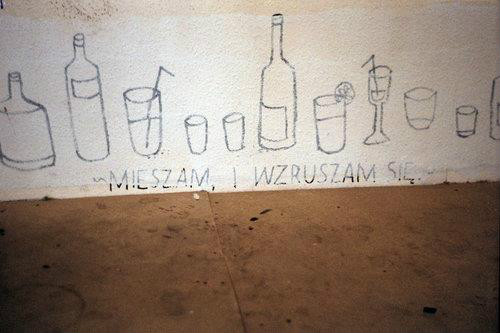 ~MIESZAM, I WZRUSZAM SIĘ.~